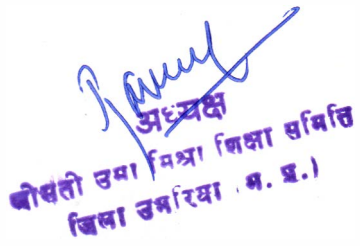 अध्यक्ष
श्रीमती उमा मिश्रा शिक्षा समिति
जिला उमरिया म. प्र.)